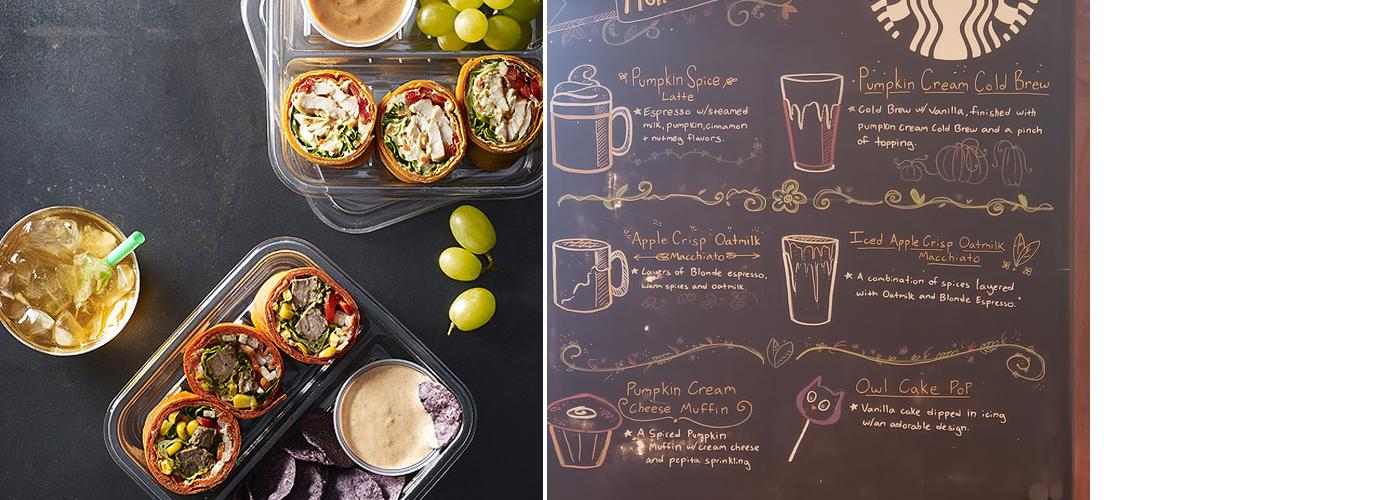 Pumpkin Spice
Latte
Espresso w/steamed
milk, pumpkin, cinnamon
+ nutmeg flavors.
Pumpkin Cream Cold Brew
Cold Brew w/ Vanilla, finished with
pumpkin cream Cold Brew and a pinch
of topping.
Apple Crisp Oatmilk
Macchiato
Layers of Blonde espresso,
warm spices and oatmilk.
Iced Apple Crisp Oatmilk
Macchiato
A combination of spices layered
with Oatmilk and Blonde Espresso.
Pumpkin Cream
Cheese Muffin
A Spiced Pumpkin
Muffin w/cream cheese
and pepita sprinkling
Owl Cake Pop
Vanilla cake dipped in icing
w/an adorable design.